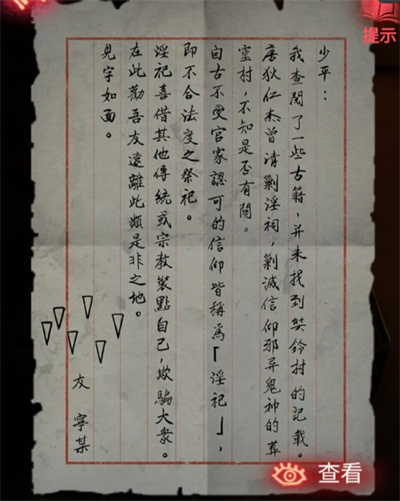 少平：
我查閱了一些古籍，并未找到奘鈴村的記載。
唐狄仁杰曾清剿淫祠，剿滅信仰邪異鬼神的葬
窑村，不知是否有關。
自古不受官家認可的信仰皆稱爲「淫祀」，
即不合法度之祭祀。
淫祀喜借其他傳統或宗教裝點自己，欺騙大衆。
在此勸吾友遠離此類是非之地。
見字如面。
友 寧某
提示
查看